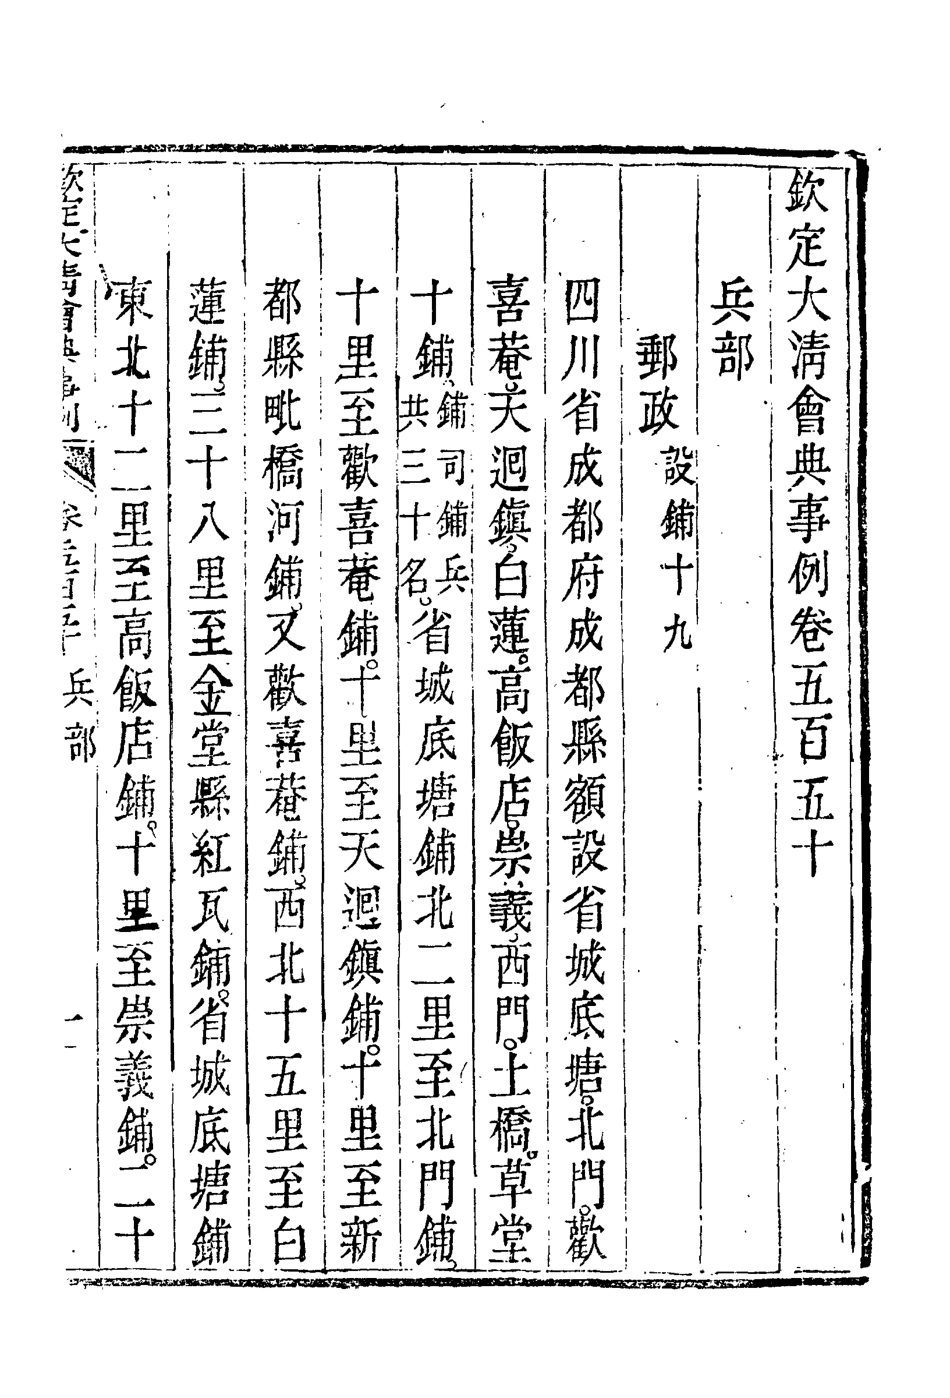 欽定大清會典事例卷五百五十
兵部
郵政設鋪十九
四川省成都府成都縣額設省城底塘。北門。歡
喜菴。天迴鎮。白蓮。高飯店。崇義。西門。土橋。草堂
十鋪。鋪司鋪兵共三十名。省城底塘鋪北二里至北門鋪。
十里至歡喜菴鋪。十里至天迴鎮鋪。十里至新
都縣毗橋河鋪。又歡喜菴鋪。西北十五里至白
蓮鋪。三十八里至金堂縣紅瓦鋪。省城底塘鋪
東北十二里至高飯店鋪。十里至崇義鋪。二十
欽定大清會典事例 卷五百五十 兵部 一